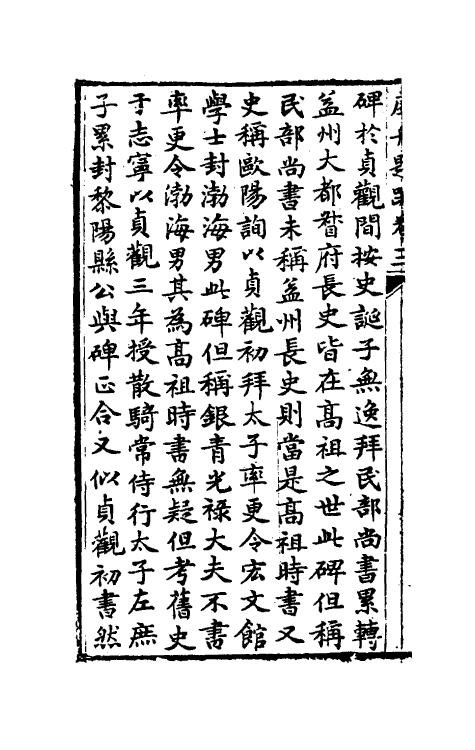 碑於貞觀間按史誕子無逸拜民部尚書累轉
益州大都督府長史皆在髙祖之世此碑但稱
民部尚書未稱益州長史則當是髙祖時書又
史稱歐陽詢以貞觀初拜太子率更令宏文館
學士封渤海男此碑但稱銀青光祿大夫不書
率更令渤海男其為髙祖時書無疑但考舊史
于志寧以貞觀三年授散騎常侍行太子左庶
子累封黎陽縣公與碑正合又似貞觀初書然